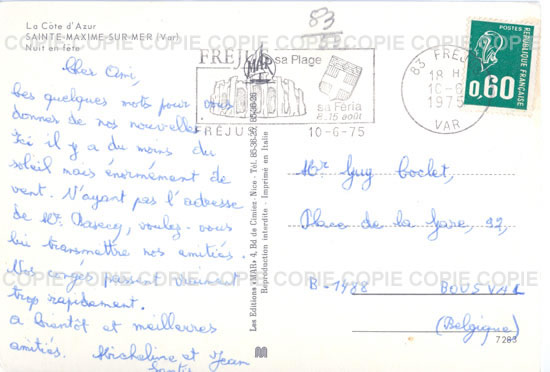 La Côte d'Azur
SAINTE-MAXIME-SUR-MER (Var)
Nuit en fête
83
Cher Ami,
Ces quelques mots pour vous
donner de nos nouvelles
Ici il y a du moins du
soleil mais énormément de
vent. N'ayant pas l'adresse
de Mr. voulez-vous
lui transmettre nos amitiés.
Nos congés passent vraiment
trop rapidement.
a bientôt et meilleures
amitiés. Micheline et Jean
FREJUS
sa Plage
sa Féria
8.15 août
FRÉJUS
10-6-75
83 FRÉJUS
18 H
10-6
1975
VAR
POSTES
REPUBLIQUE FRANÇAISE
0,60
Les Editions «MAR» 4, Bd de Cimiez - Nice - Tél. 85-36-25, 85-36-26
Reproduction interdite - Imprimé en Italie
Mr Guy Coclet,
Place de la Gare, 92,
B-1488 BOUSVAL
(Belgique)
7283
COPIE COPIE COPIE COPIE COPIE COPIE COPIE
COPIE COPIE COPIE COPIE COPIE COPIE COPIE